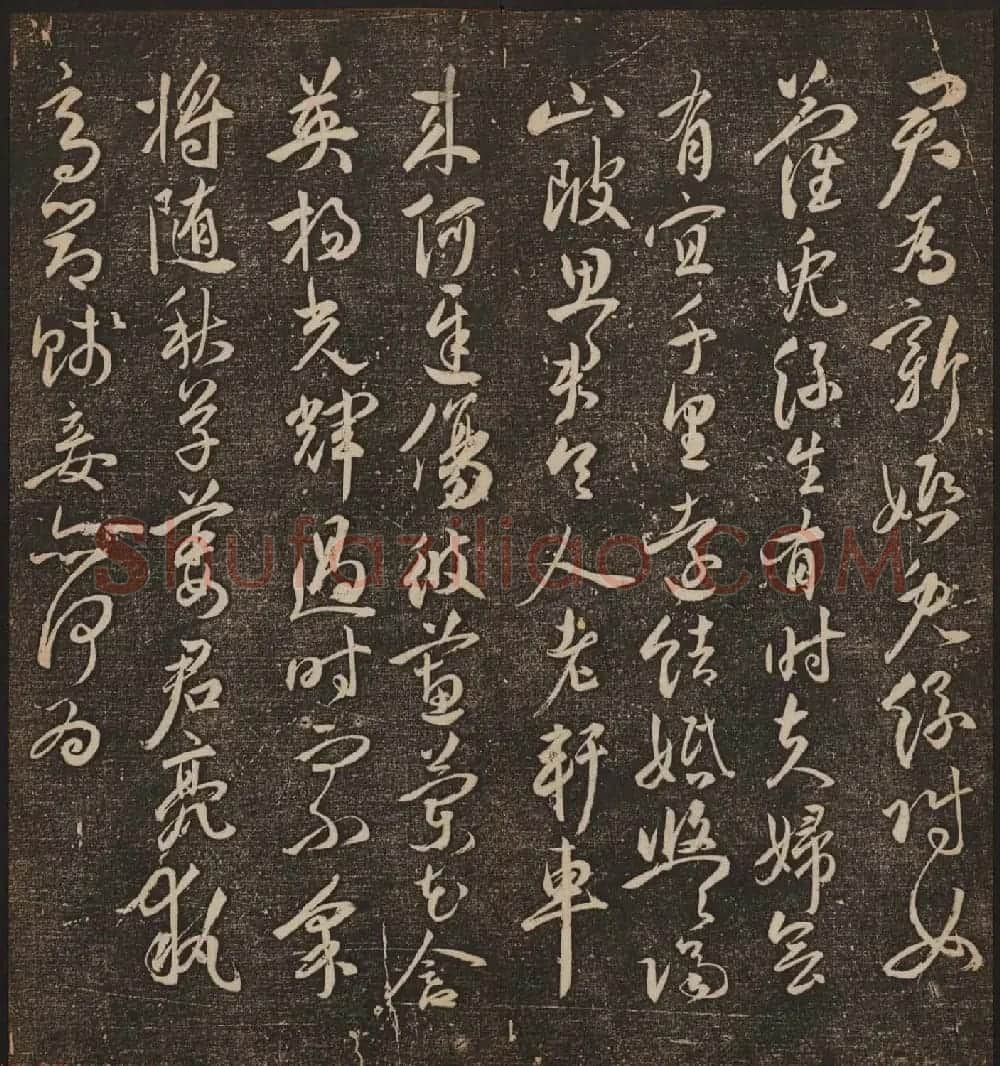 君為新婚兔絲附女
蘿兔絲生有時夫婦會
有宜千里遠結婚悠々隔
山陂思君令人老軒車
來何遲傷彼蕙蘭花含
英揚光輝過時而不采
將隨秋草萎君亮執
高節賤妾亦何為
Shufaziliao.COM